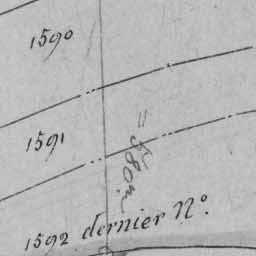 1590
1591
=580m
1592 dernier N°.